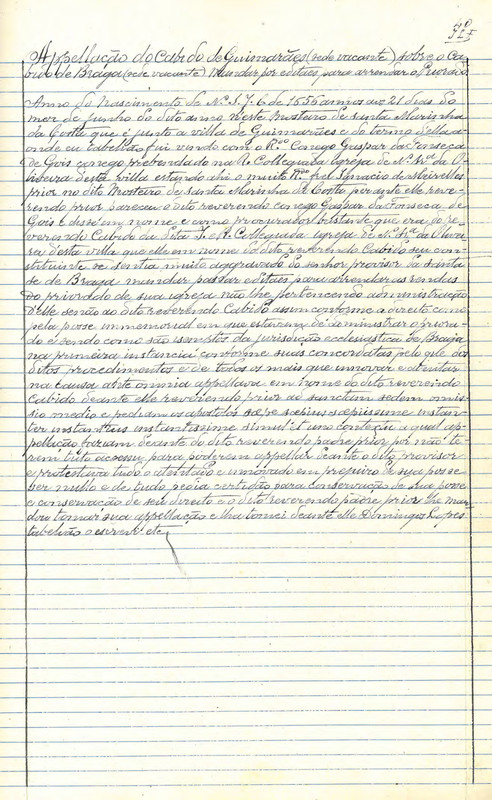 Appellação do Cabido de Guimarães (sede vacante) sobre o Ca-
bido de Braga (sede vacante) mandar por editaes para arrendar o Priorado
Anno do Nascimento de N.º S. J. C. de 1655 annos aos 21 dias do
mez de junho do dito anno neste Mosteiro de Santa Marinha
da Costa que é junto a villa de Guimarães e do termo della a-
onde eu tabellião fui vindo com o R.do Conego Gaspar da Fonseca
de Gois conego prebendado na R. Collegiada Igreja de N.ª Sr.ª da O-
liveira desta villa estando ahi o muito R.do frei Ignacio de Meirelles
prior no dito Mosteiro de Santa Marinha da Costa perante elle reve-
rendo prior pareceu o dito reverendo conego Gaspar da Fonseca de
Gois e disse em nome e como procurador bastante que era do re-
verendo Cabido da S.ta I. e R. Collegiada Igreja de N.ª Sr.ª da Olivei-
ra desta villa que elle em nome do dito reverendo Cabido seu con-
stituinte se sentia muito aggravado do senhor provisor da santa
sé de Braga mandar passar editaes para arrendar as rendas
do priorado de sua igreja não lhe pertencendo administração
d'elle senão ao dito reverendo Cabido assim conforme a direito como
pela posse immemorial em que estavam de administrar o priora-
do e sendo como são isemptos da jurisdição ecclesiastica de Braga
na primeira instancia conforme suas concordatas pelo que dos
ditos procedimentos e de todos os mais que innovar e attentar
na causa ante omnia appellava em nome do dito reverendo
Cabido deante elle reverendo prior ad sanctam sedem omis-
sio medio e pediam os apostolos sæpe sæpius sæpissime instan-
ter instantius instantissime simul et uno contextu a qual ap-
pellação faziam deante do dito reverendo padre prior por não te-
rem tuto accesso para poderem appellar deante o dito provisor
e protestava tudo o attentado e innovado em prejuizo de sua posse
ser nullo e de tudo pedia certidão para conservação de sua posse
e conservação de seu direito e o dito reverendo padre prior lhe man-
dou tomar sua appellação e lha tomei deante elle Domingos Lopes
tabelião o escrevi etc